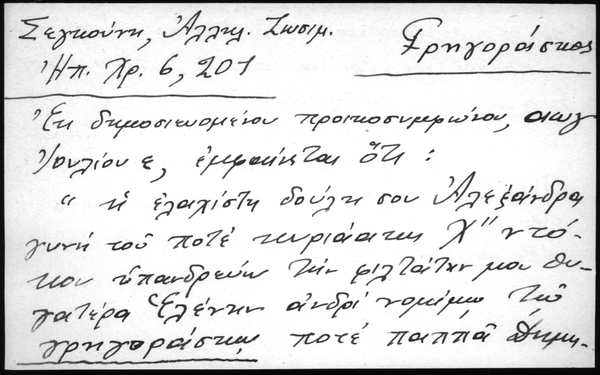 Σεγκούνη, Ἀλληλ. Ζωσιμ.
Γρηγοράσκος
Ἠπ. Χρ. 6, 201
Ἐκ δημοσιευομένου προικοσυμφώνου, αωγ
Ἰουλίου ε, ἐμφαίνεται ὅτι :
" ἡ ἐλαχίστη δούλη σου Ἀλεξάνδρα
γυνή τοῦ ποτέ κυριάκη Χ" ντό-
κου ὑπανδρεύω τήν φιλτάτην μου θυ-
γατέρα Ἑλένην ἀνδρί νομίμῳ τῷ
γρηγοράσκῳ ποτέ παππᾶ Δημη-